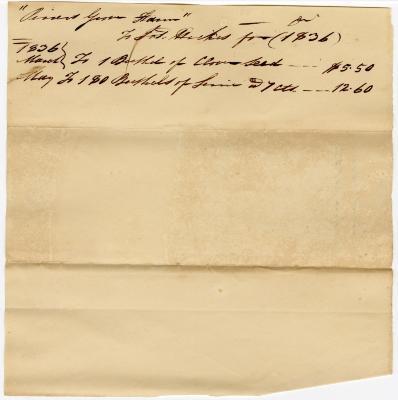 " Grove Farm" Dr
To Jos. for (1836)
1836
March } To 1 Bushel of Clover Seed $5.50
May To 180 Bushels of Lime @ 7 cts 12.60